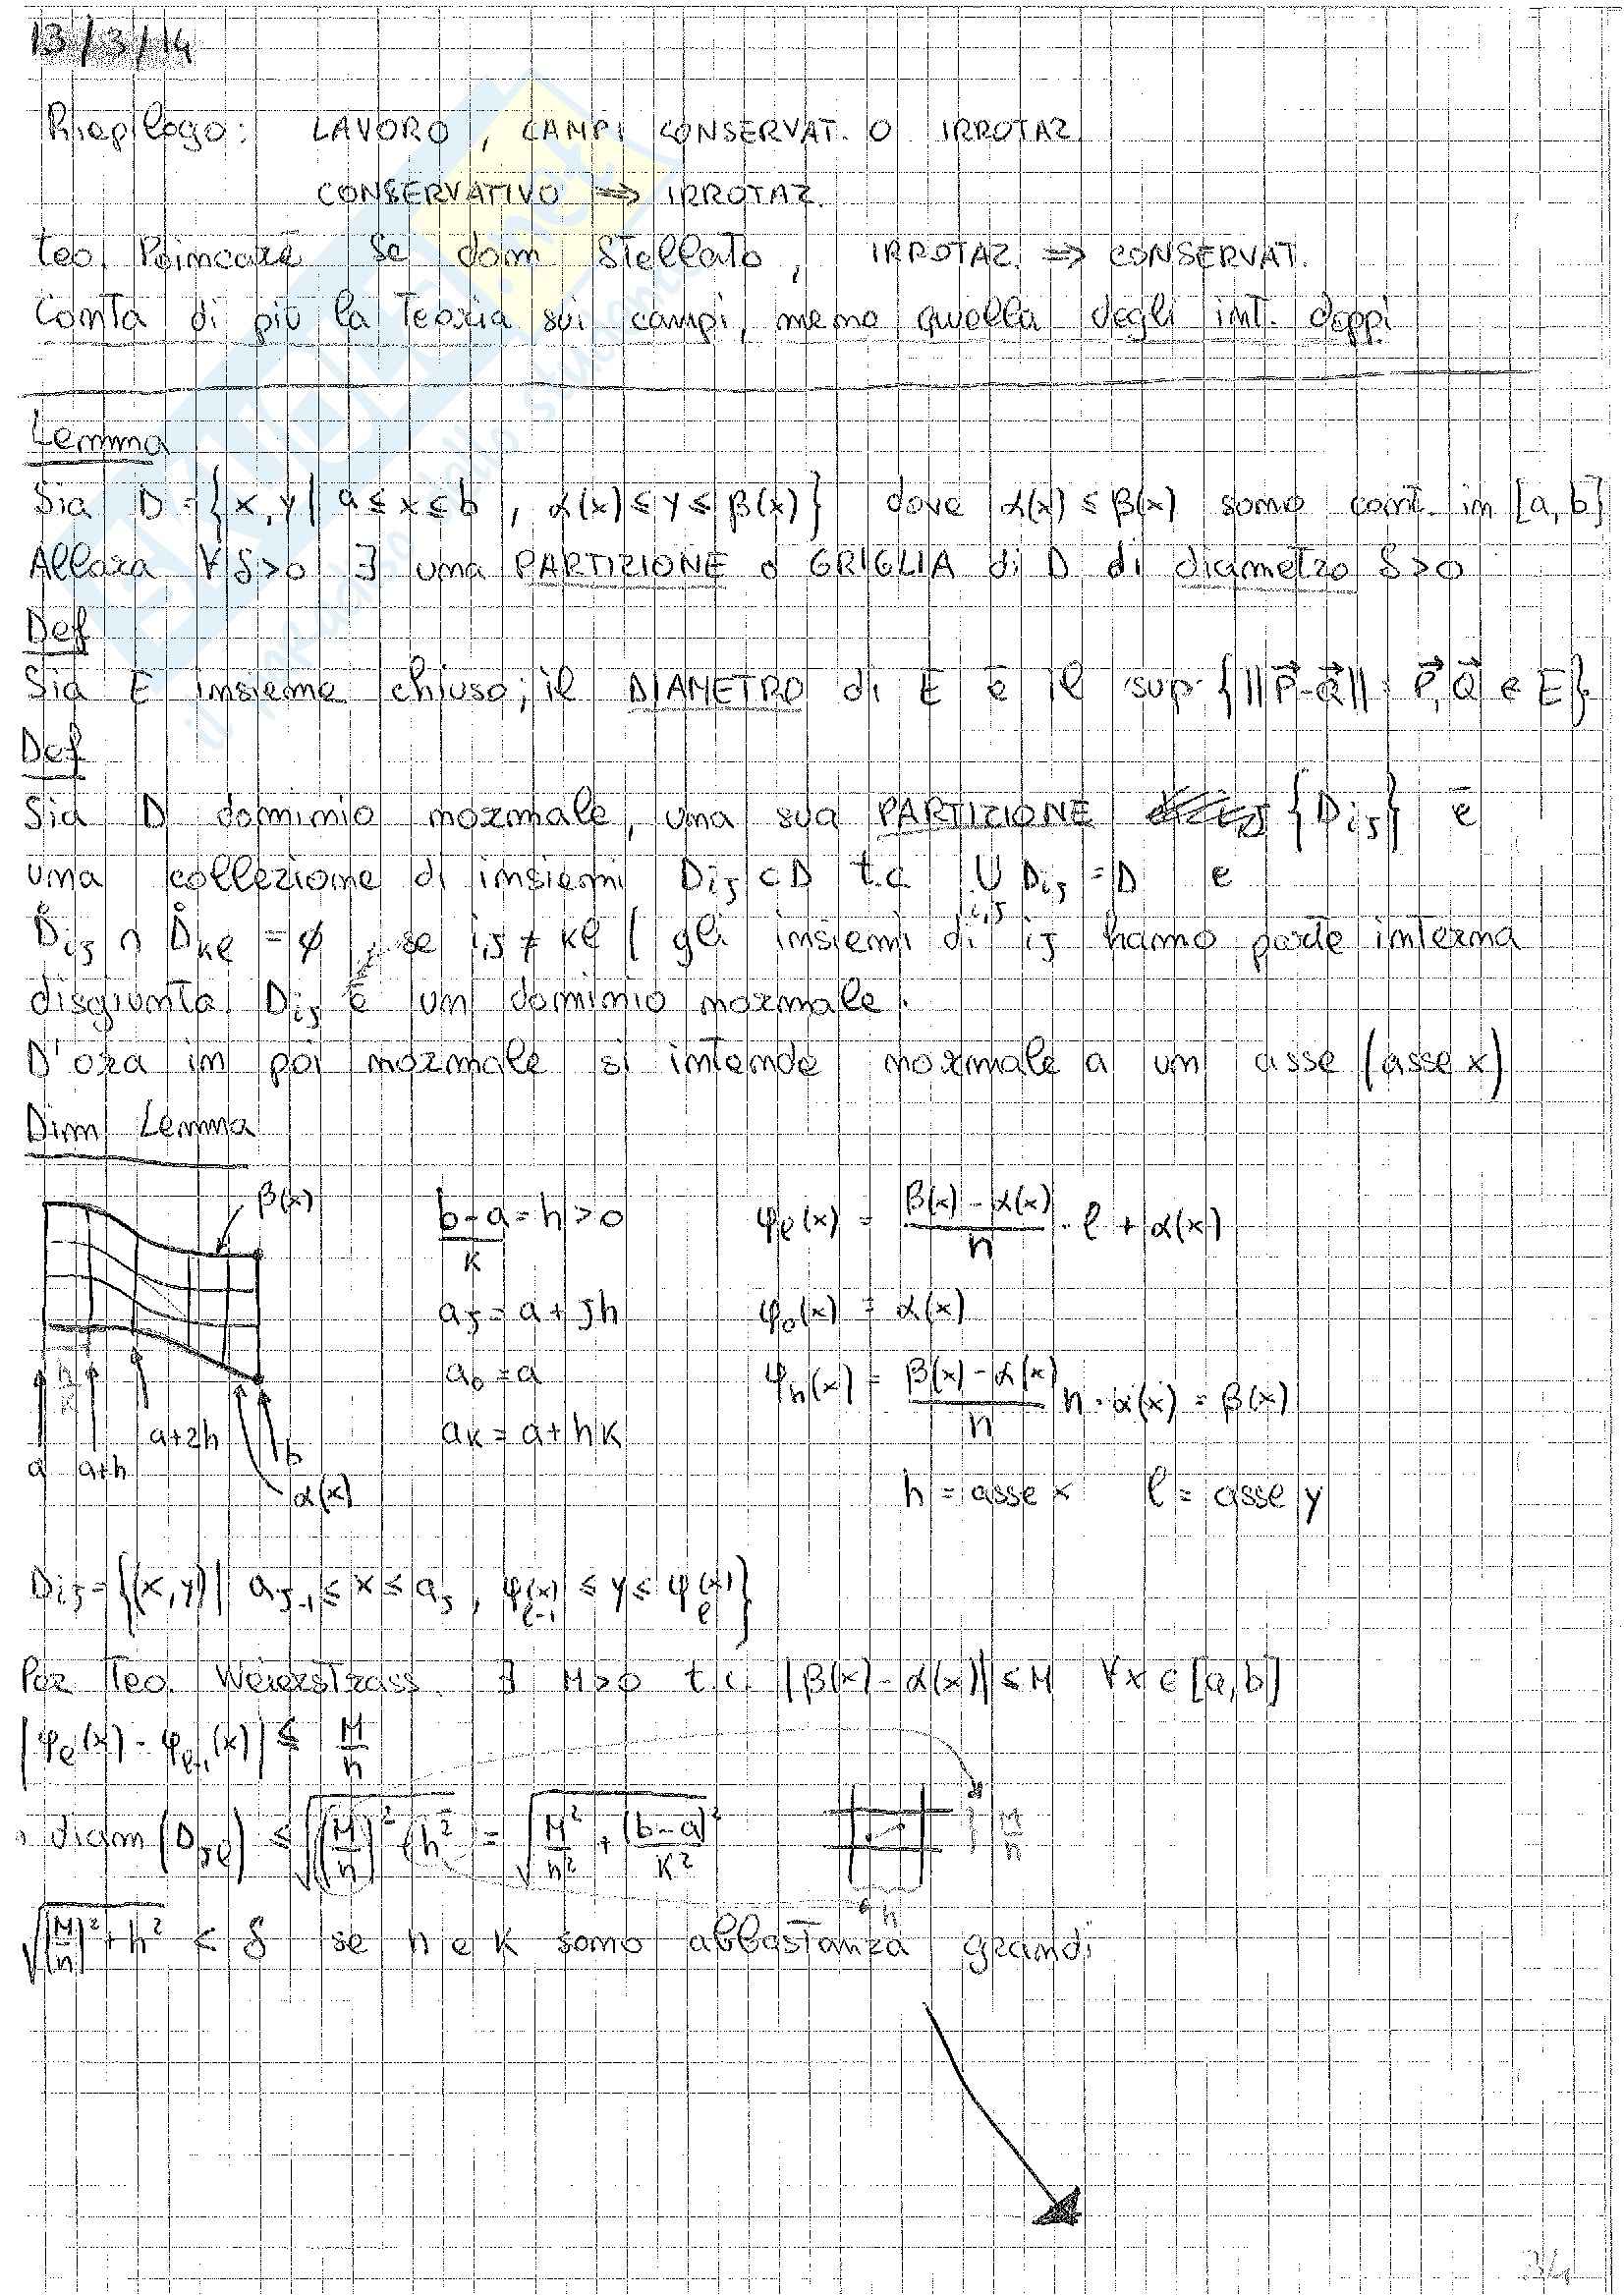 13/3/14
Riepilogo: LAVORO, CAMPI CONSERVAT. O IRROTAZ.
CONSERVATIVO => IRROTAZ.
teo. Poincarè se dom stellato, IRROTAZ. => CONSERVAT.
Conta di più la teoria sui campi, meno quella degli int. doppi
Lemma
Sia D = {x,y | a ≤ x ≤ b, α(x) ≤ y ≤ β(x)} dove α(x) ≤ β(x) sono cont. in [a,b]
Allora ∀ δ>0 ∃ una PARTIZIONE o GRIGLIA di D di diametro δ>0
Def
Sia E insieme chiuso; il DIAMETRO di E è il sup {||P⃗-Q⃗|| : P⃗,Q⃗ ∈ E}
Def
Sia D dominio normale, una sua PARTIZIONE {Dij} è
una collezione di insiemi Dij ⊂ D t.c. ∪ Dij = D e
i,j
D̊ij ∩ D̊kl = ∅, se ij ≠ kl ( gli insiemi di ij hanno parte interna
disgiunta. Dij è un dominio normale.
D'ora in poi normale si intende normale a un asse (asse x)
Dim Lemma
β(x)
b-a/k = h > 0
φℓ(x) = β(x) - α(x)/n · ℓ + α(x)
aj = a + jh
φ0(x) = α(x)
a0 = a
φn(x) = β(x) - α(x)/n n · α(x) = β(x)
ak = a + hk
a a+h a+2h b
α(x)
h = asse x ℓ = asse y
Dij = {(x,y) | aj-1 ≤ x ≤ aj, φℓ-1(x) ≤ y ≤ φℓ(x)}
Per Teo. Weierstrass ∃ M>0 t.c. |β(x) - α(x)| ≤ M ∀x ∈ [a,b]
|φℓ(x) - φℓ-1(x)| ≤ M/n
diam (Djℓ) ≤ √((M/n)² + h²) = √(M²/n² + (b-a)²/k²)
M/n
h
√((M/n)² + h²) < δ se n e k sono abbastanza grandi